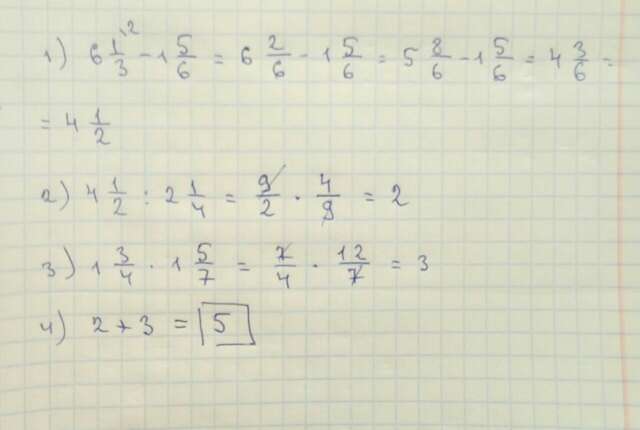 1) 6 1/3 \2 - 1 5/6 = 6 2/6 - 1 5/6 = 5 8/6 - 1 5/6 = 4 3/6 =
= 4 1/2
2) 4 1/2 : 2 1/4 = 9/2 · 4/9 = 2
3) 1 3/4 · 1 5/7 = 7/4 · 12/7 = 3
4) 2 + 3 = 5